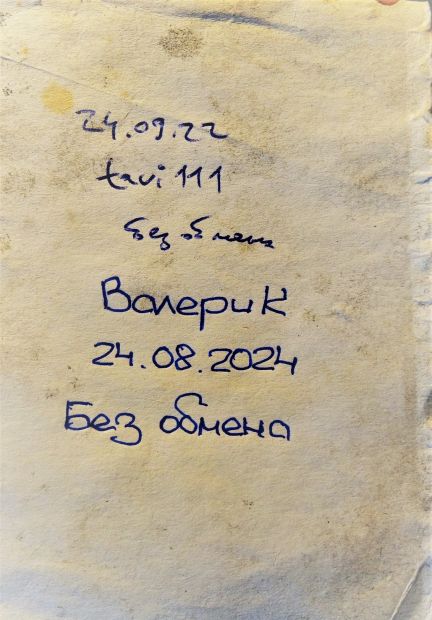 24.09.22
tavi 111
Без обмена
Валерик
24.08.2024
Без обмена